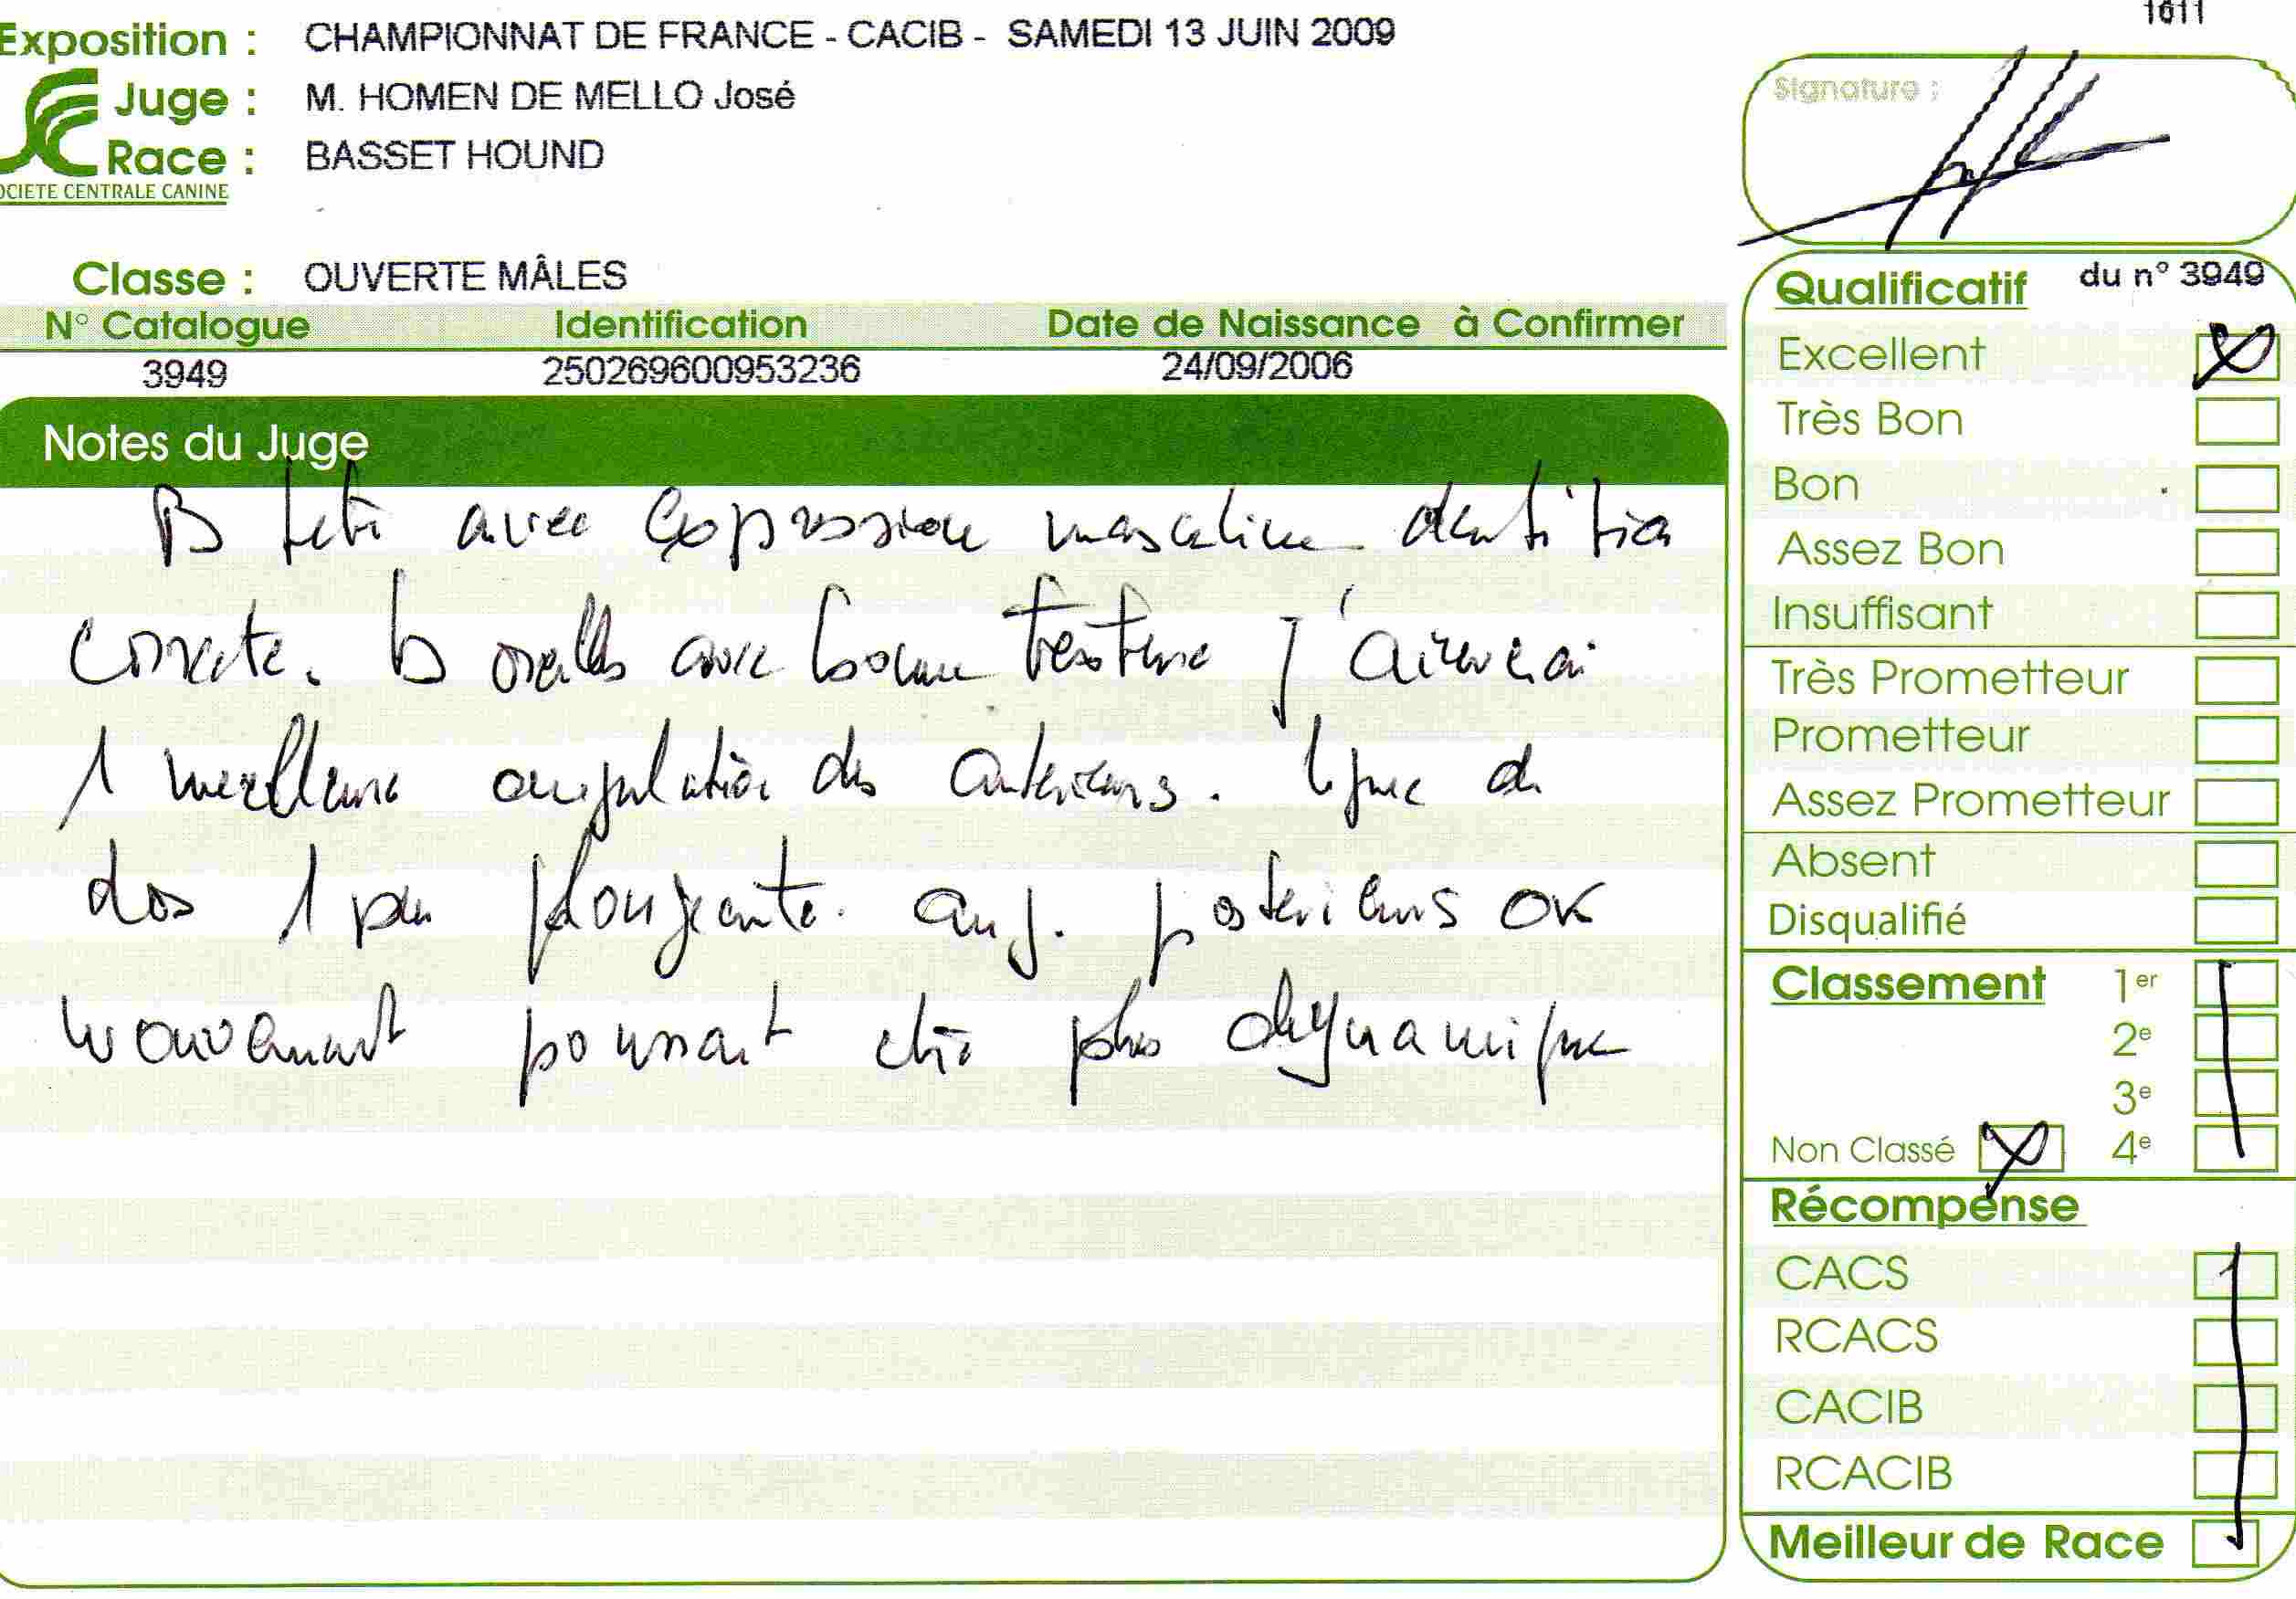 1611
Exposition : CHAMPIONNAT DE FRANCE - CACIB - SAMEDI 13 JUIN 2009
Juge : M. HOMEN DE MELLO José
Race : BASSET HOUND
OCIETE CENTRALE CANINE
Signature :
Classe : OUVERTE MÂLES
N° Catalogue Identification Date de Naissance à Confirmer
3949 250269600953236 24/09/2006
Notes du Juge
B tete avec expression masculine dentition
correcte. B oreilles avec bonne texture j'aimerai
1 meilleure angulation des anterieurs. ligne de
dos 1 peu plongeante. ang. posterieurs OK
mouvement pourrait etre plus dynamique
Qualificatif du n° 3949
Excellent
Très Bon
Bon
Assez Bon
Insuffisant
Très Prometteur
Prometteur
Assez Prometteur
Absent
Disqualifié
Classement 1er
2e
3e
Non Classé 4e
Récompense
CACS
RCACS
CACIB
RCACIB
Meilleur de Race